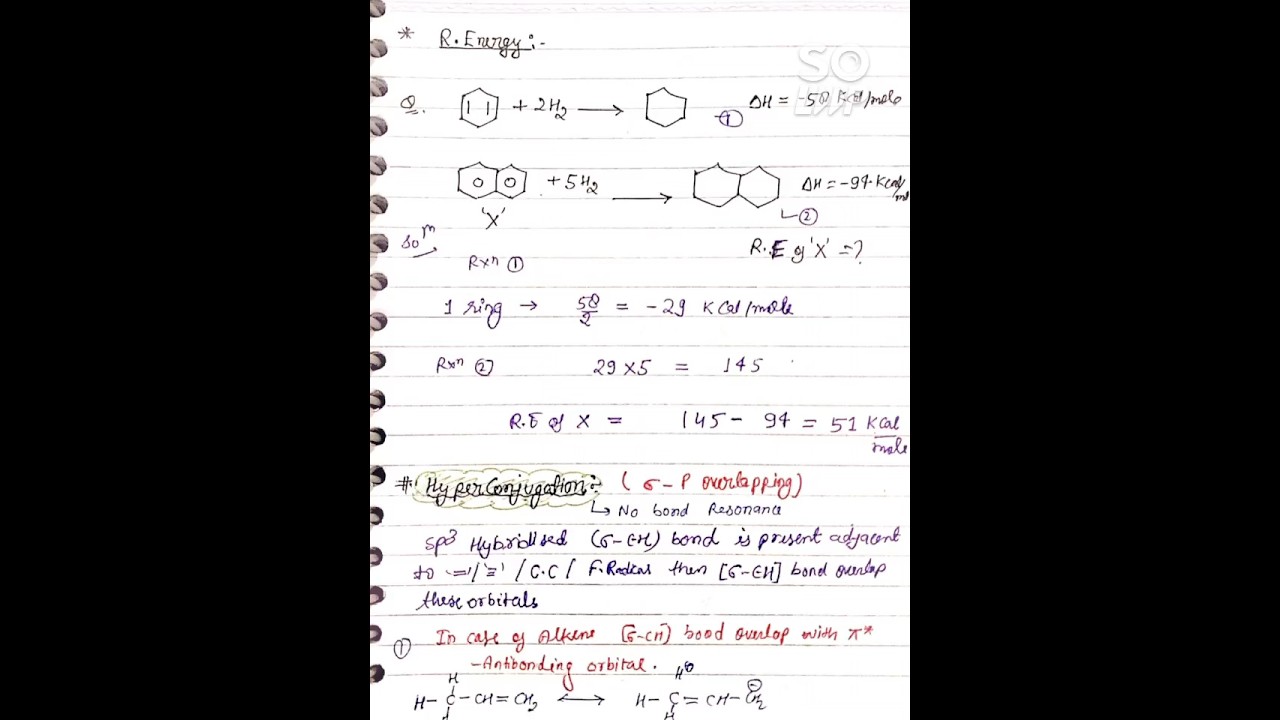 * R. Energy:-
SO
Q. + 2H₂ ⟶ ① ΔH = -58 Kcal/mole
+ 5H₂ ⟶ ② ΔH = -94 Kcal/
'X'
Solⁿ R.E of 'X' = ?
Rxⁿ ①
1 ring → 58/2 = -29 KCal/mole
Rxⁿ ② 29 × 5 = 145
R.E of X = 145 - 94 = 51 KCal/mole
# HyperConjugation: (σ-P overlapping)
↳ No bond Resonance
SP³ Hybridised (σ-CH) bond is present adjacent
to '='/'≡' / C.C / F. then [σ-CH] bond overlap
these orbitals
① In case of Alkene [σ-CH] bond overlap with π*
-Antibonding orbital.
H H⊕
H-C-CH=CH₂ ⟷ H-C=CH-CH₂⊖
H H